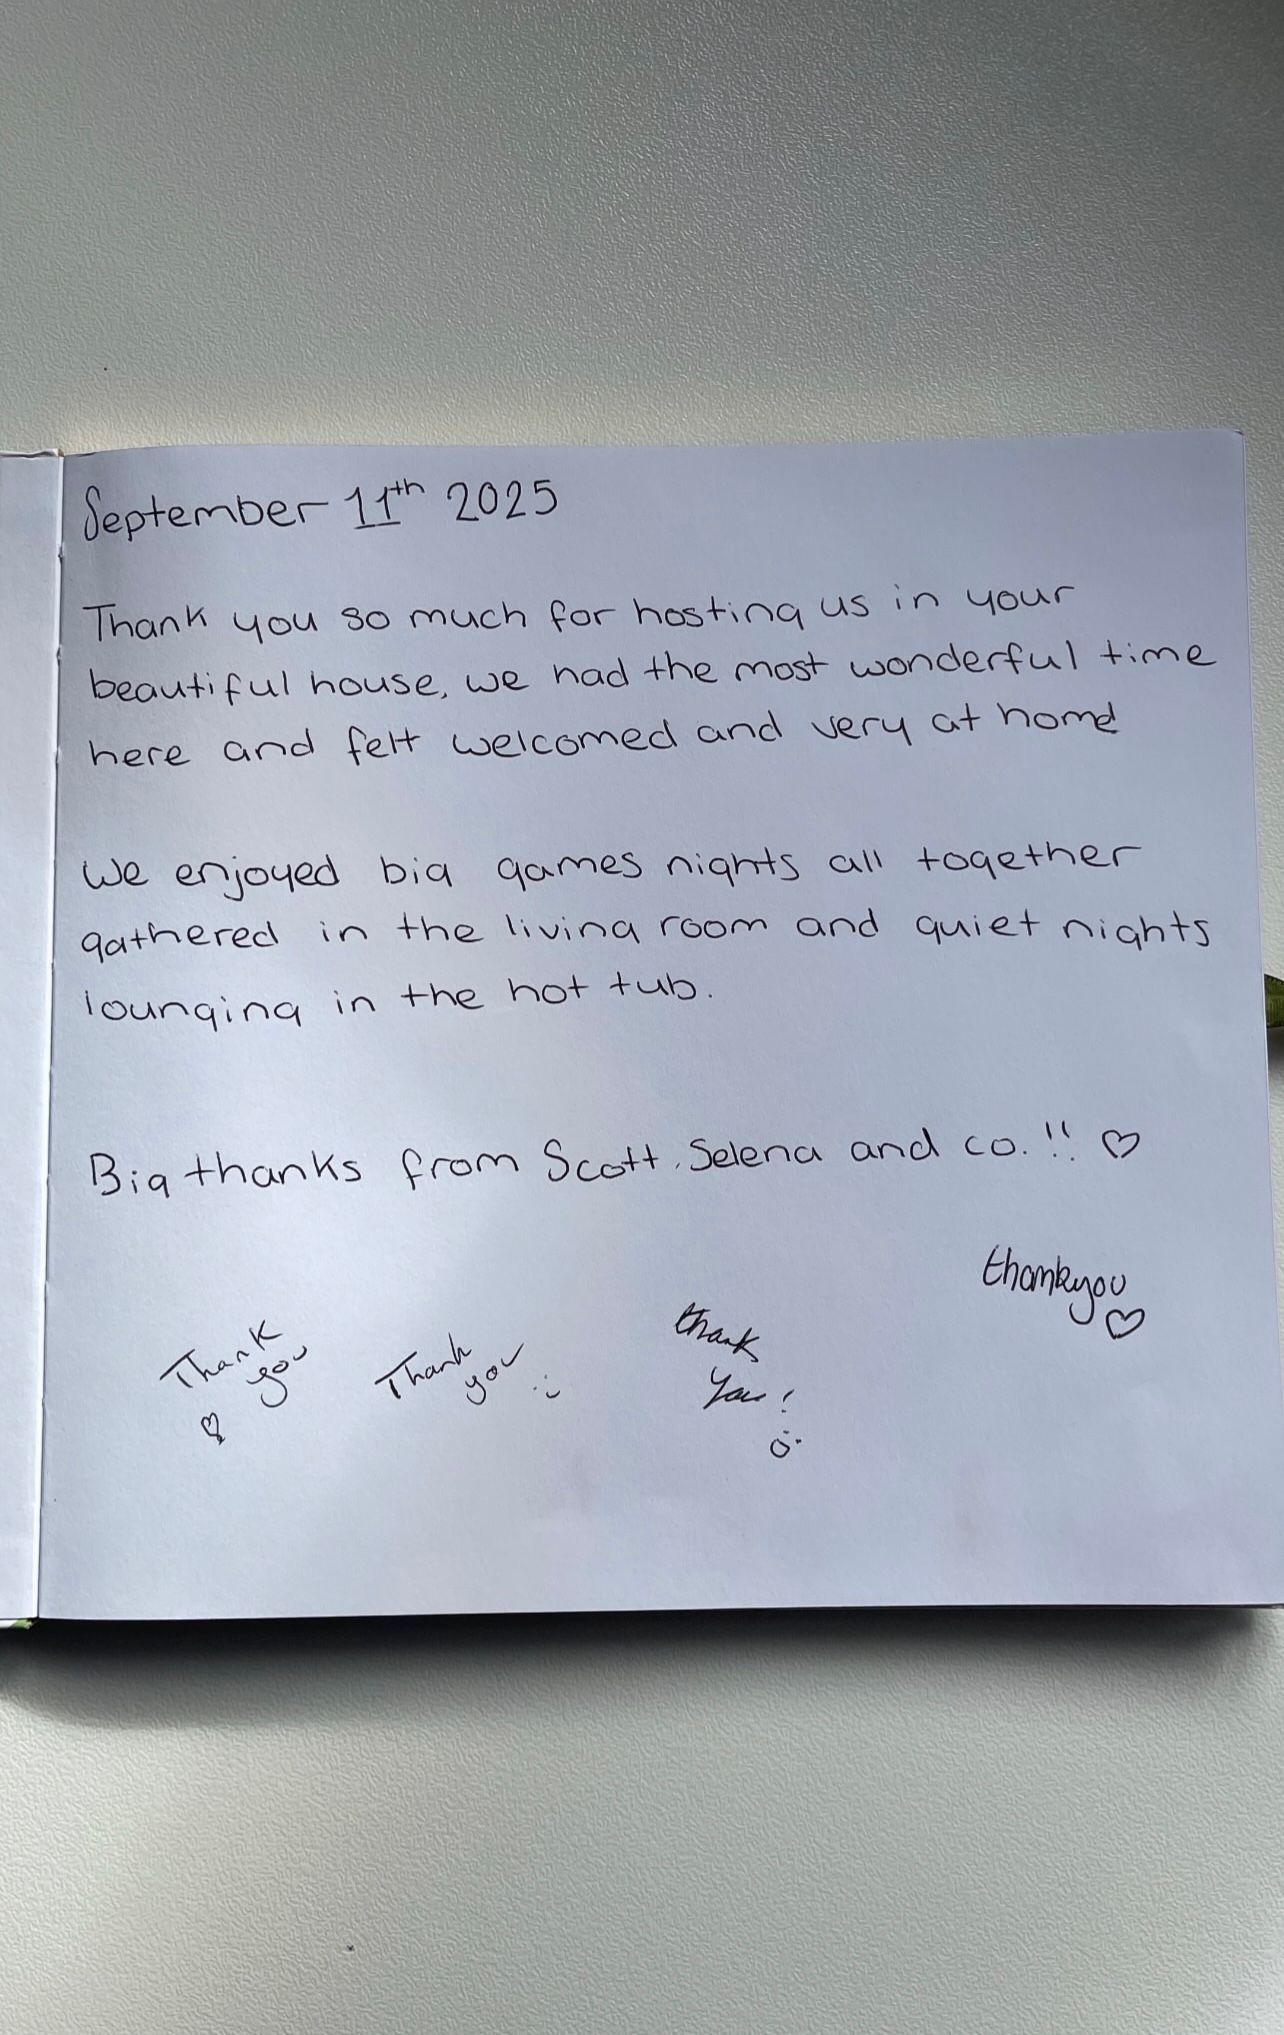 September 11th 2025
Thank you so much for hosting us in your
beautiful house, we had the most wonderful time
here and felt welcomed and very at home
We enjoyed big games nights all together
gathered in the living room and quiet nights
lounging in the hot tub.
Big thanks from Scott, Selena and co.!! ♡
thankyou
♡
Thank
you
♡
Thank
you :)
thank
you!